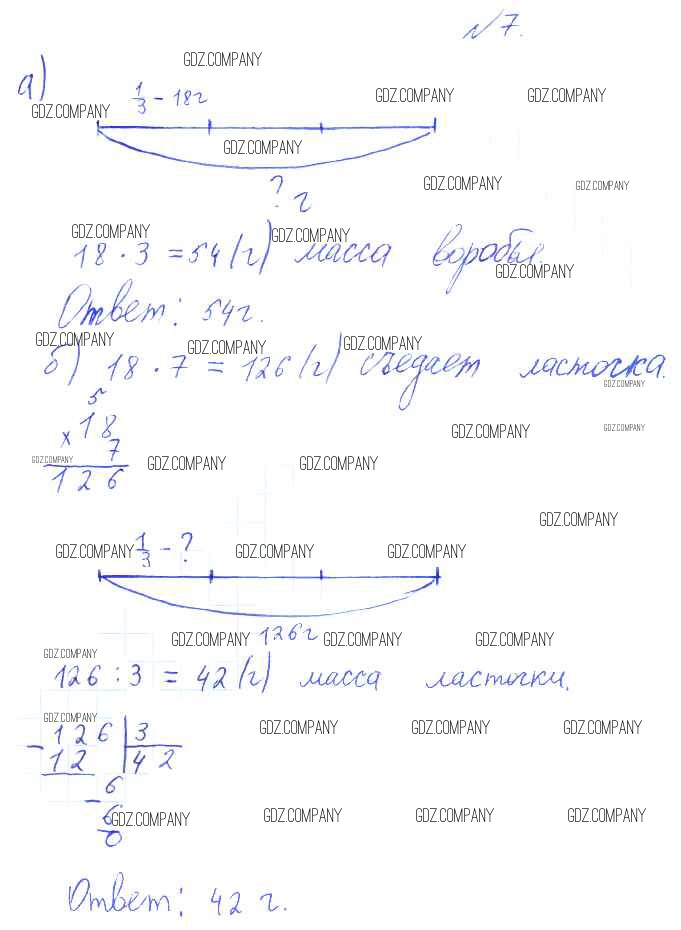 №7.
GDZ.COMPANY
а)
1/3 - 18г
GDZ.COMPANY GDZ.COMPANY
GDZ.COMPANY
GDZ.COMPANY
GDZ.COMPANY GDZ.COMPANY
? г
GDZ.COMPANY GDZ.COMPANY
18 · 3 = 54 (г) масса воробья.
GDZ.COMPANY
Ответ: 54г.
GDZ.COMPANY GDZ.COMPANY GDZ.COMPANY
б) 18 · 7 = 126 (г) съедает ласточка.
GDZ.COMPANY
5
× 18
7
GDZ.COMPANY GDZ.COMPANY
GDZ.COMPANY GDZ.COMPANY GDZ.COMPANY
126
GDZ.COMPANY
1/3 - ?
GDZ.COMPANY GDZ.COMPANY GDZ.COMPANY
126г
GDZ.COMPANY GDZ.COMPANY GDZ.COMPANY
GDZ.COMPANY
126 : 3 = 42 (г) масса ласточки.
GDZ.COMPANY
- 126 | 3
12 | 42
GDZ.COMPANY GDZ.COMPANY GDZ.COMPANY
- 6
6
GDZ.COMPANY GDZ.COMPANY GDZ.COMPANY GDZ.COMPANY
0
Ответ: 42 г.